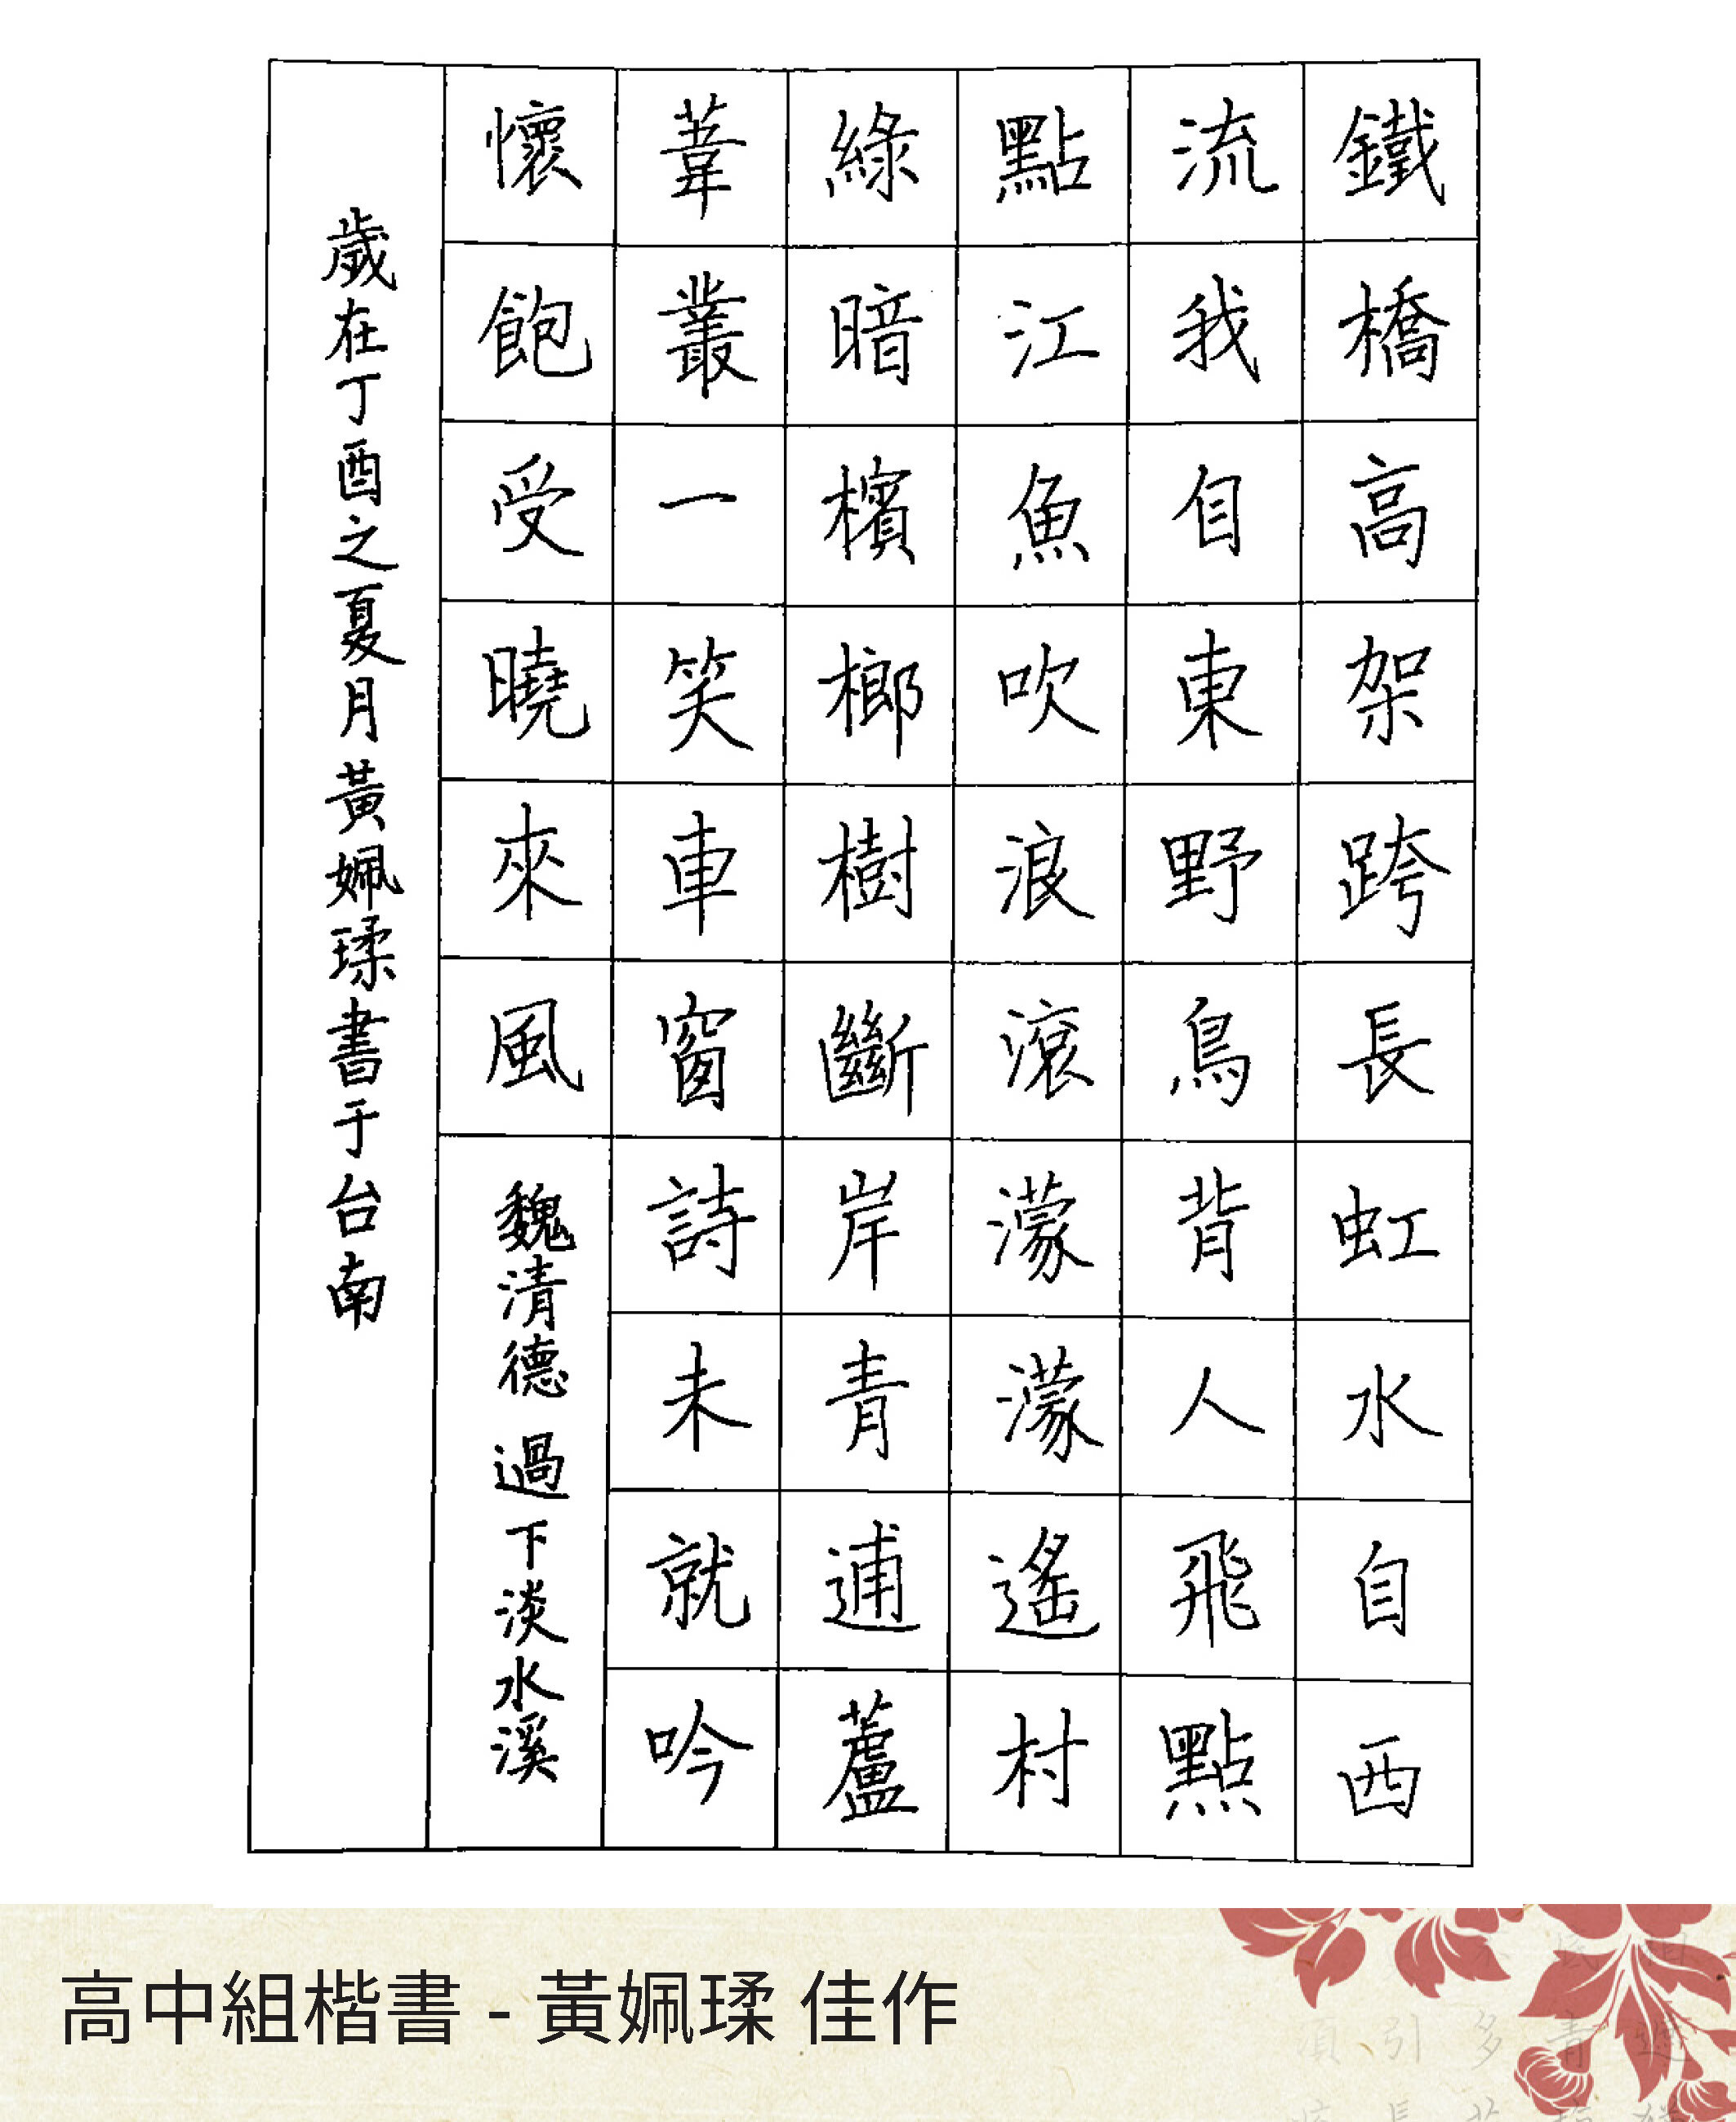 鐵橋高架跨長虹水自西
流我自東野鳥背人飛點
點江魚吹浪滾濛濛遙村
綠暗檳榔樹斷岸青逋蘆
葦叢一笑車窗詩未就吟
懷飽受曉來風
魏清德 過下淡水溪
歲在丁酉之夏月黃姵瑈書于台南
高中組楷書 - 黃姵瑈 佳作